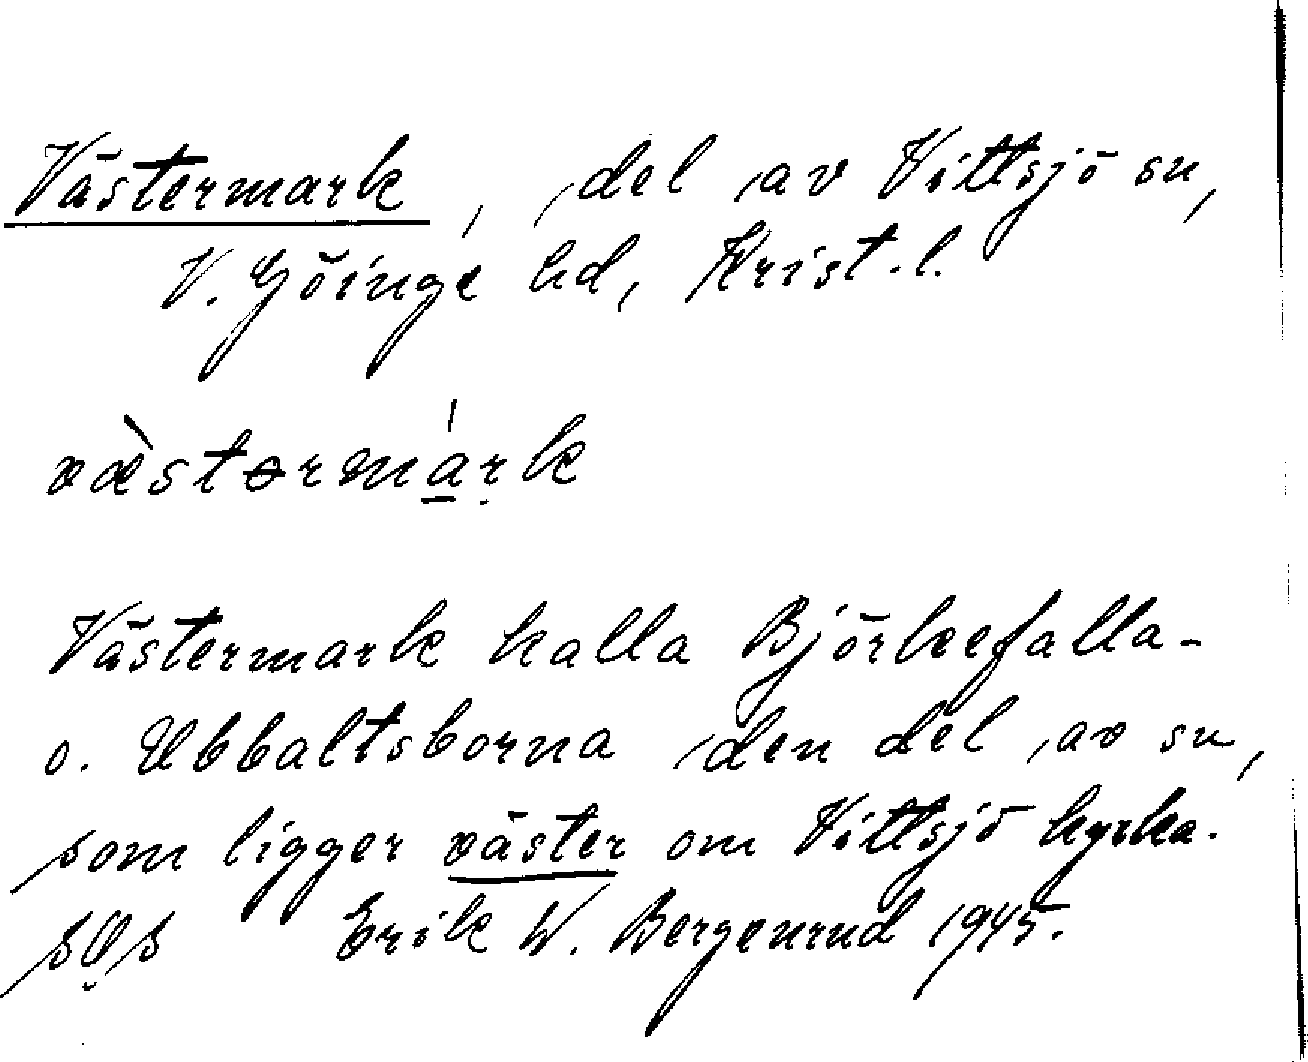 Västermark, del av Vittsjö sn,
V. Göinge hd, Krist. l.
væ̀stərmárk
Västermark kalla Björkefalla-
o. Ubbaltsborna den del av sn,
som ligger väster om Vittsjö kyrka.
Erik W. Bergenrud 1945.